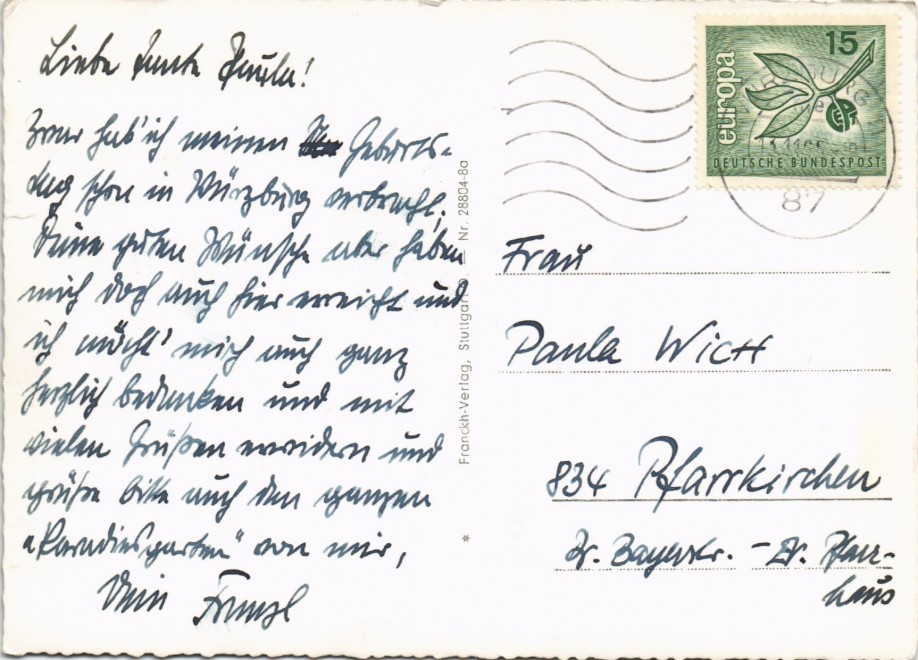 Liebe Tante Paula!
Zwar hab' ich meinen Geburts-
tag schon in Würzburg verbracht,
Deine guten Wünsche aber haben
mich doch auch hier erreicht und
ich möcht' mich auch ganz
herzlich bedanken und mit
vielen Grüßen erwidern und
grüße bitte auch den ganzen
"Paradiesgarten" von mir,
Dein Franzl
Franckh-Verlag, Stuttgart. — Nr. 28804-8a
*
europa
15
CEPT
DEUTSCHE BUNDESPOST
87
Frau
Paula Witt
834 Pfarrkirchen
Dr. Bayerstr. - Pfarr-
haus